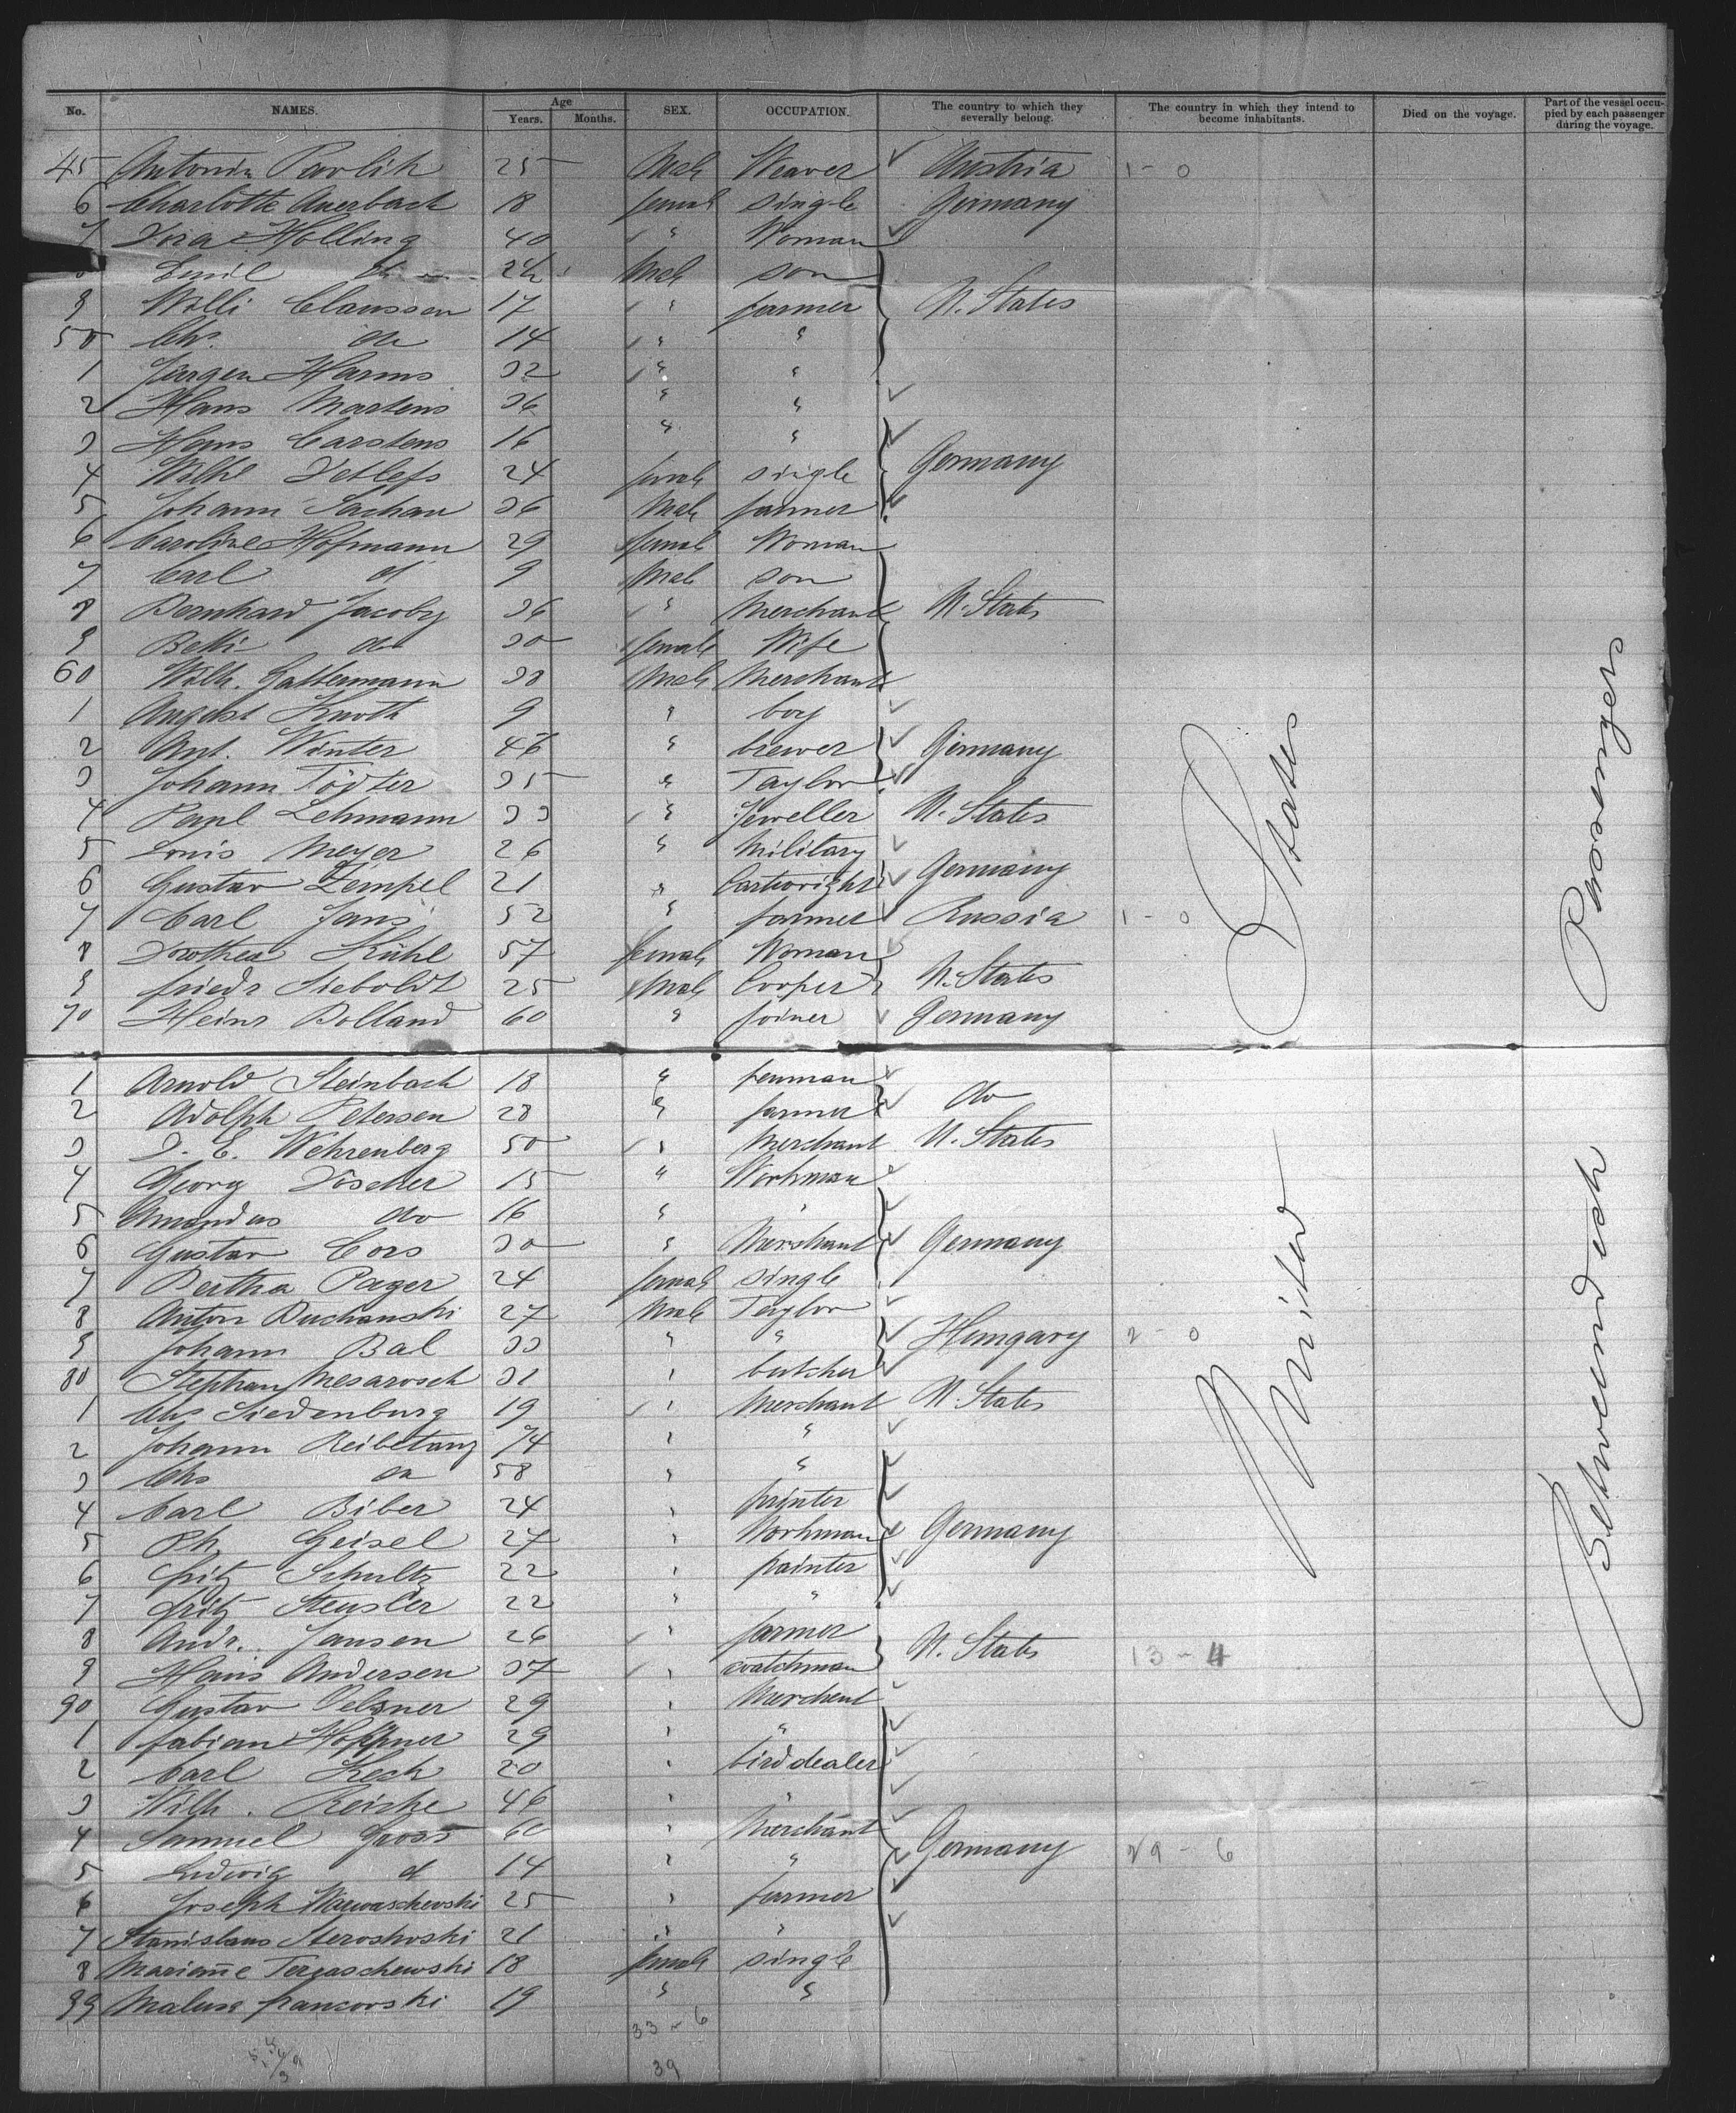 No. NAMES. Age Years. Months. SEX. OCCUPATION. The country to which they severally belong. The country in which they intend to become inhabitants. Died on the voyage. Part of the vessel occupied by each passenger during the voyage.
45 Antonin Pavlik 25 Male Weaver Austria 1 - 0
6 Charlotte Auerbach 18 female single Germany
7 Dora Holling 40 " Woman
Emil do Male son
9 Willi Claussen 17 " farmer U. States
50 Chr. do 14 " "
1 Jürgen Harms 32 " "
2 Hans Martens 36 " "
3 Hans Carstens 16 " "
4 Wilhe Detlefs 24 female single Germany
5 Johann Sachau 36 Male farmer
6 Caroline Hofmann 29 female Woman
7 Carl d 9 Male son
8 Bernhard Jacoby 36 " Merchant U. States
9 Betti do 30 female Wife
60 Wilh. Gattermann 38 Male Merchant
1 August Knoth 9 " boy
2 Ant. Winter 46 " brewer Germany
3 Johann Tödter 35 " Taylor
4 Paul Lehmann 33 " Jeweller U. States
5 Louis Meyer 26 " Military
6 Gustav Zempel 21 " Cartwright Germany
7 Carl Jans 52 " farmer Russia 1 - 0
8 Dorothea Kühl 57 female Woman
9 friedr Sieboldt 25 Male Cooper U. States
70 Heinr Bolland 60 " joiner Germany
1 Arnold Steinbach 18 " penman
2 Adolph Petersen 28 " farmer do
3 D. E. Wehrenberg 50 " Merchant U. States
4 Georg Döscher 15 " Workman
5 Amandus do 16 " "
6 Gustav Cors 30 " Merchant Germany
7 Bertha Prager 24 female single
8 Anton Duchanski 27 Male Taylor
9 Johann Bal 33 " " Hungary 2 - 0
80 Stephan Mesarosch 31 " butcher
1 Chs Siedenburg 19 " Merchant U. States
2 Johann Reibetanz 74 " "
3 Chs do 58 " "
4 Carl Biber 24 " printer
5 Ph. Geisel 27 " Workman Germany
6 fritz Schultz 22 " painter
7 fritz Steusler 22 " "
8 Andr. Jansen 26 " farmer U. States 13 - 4
9 Hans Andersen 37 " watchman
90 Gustav Pelzner 29 " Merchant
1 fabian Höppner 29 " "
2 Carl Kech 20 " bird dealer
3 Wilh. Reiche 46 " "
4 Samuel Gross 60 " Merchant
5 Ludwig d 14 " " Germany 29 - 6
6 Joseph Warwaschewski 25 " farmer
7 Stanislaus Steroshoski 21 " "
8 Marian̄e Terzaschewski 18 female single
99 francovski 19 " "
33 - 6
39
United States
Betweendeck Passengers